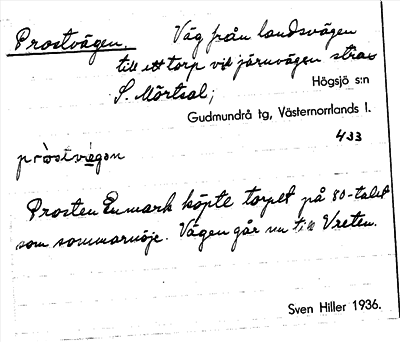 Prostvägen. Väg från landsvägen
till ett torp vid järnvägen strax
S. Mörtsal;
Högsjö s:n
Gudmundrå tg, Västernorrlands l.
433
pròstvägen
Prosten Enmark köpte torpet på 80-talet
som sommarnöje. Vägen går nu till Vreten.
Sven Hiller 1936.